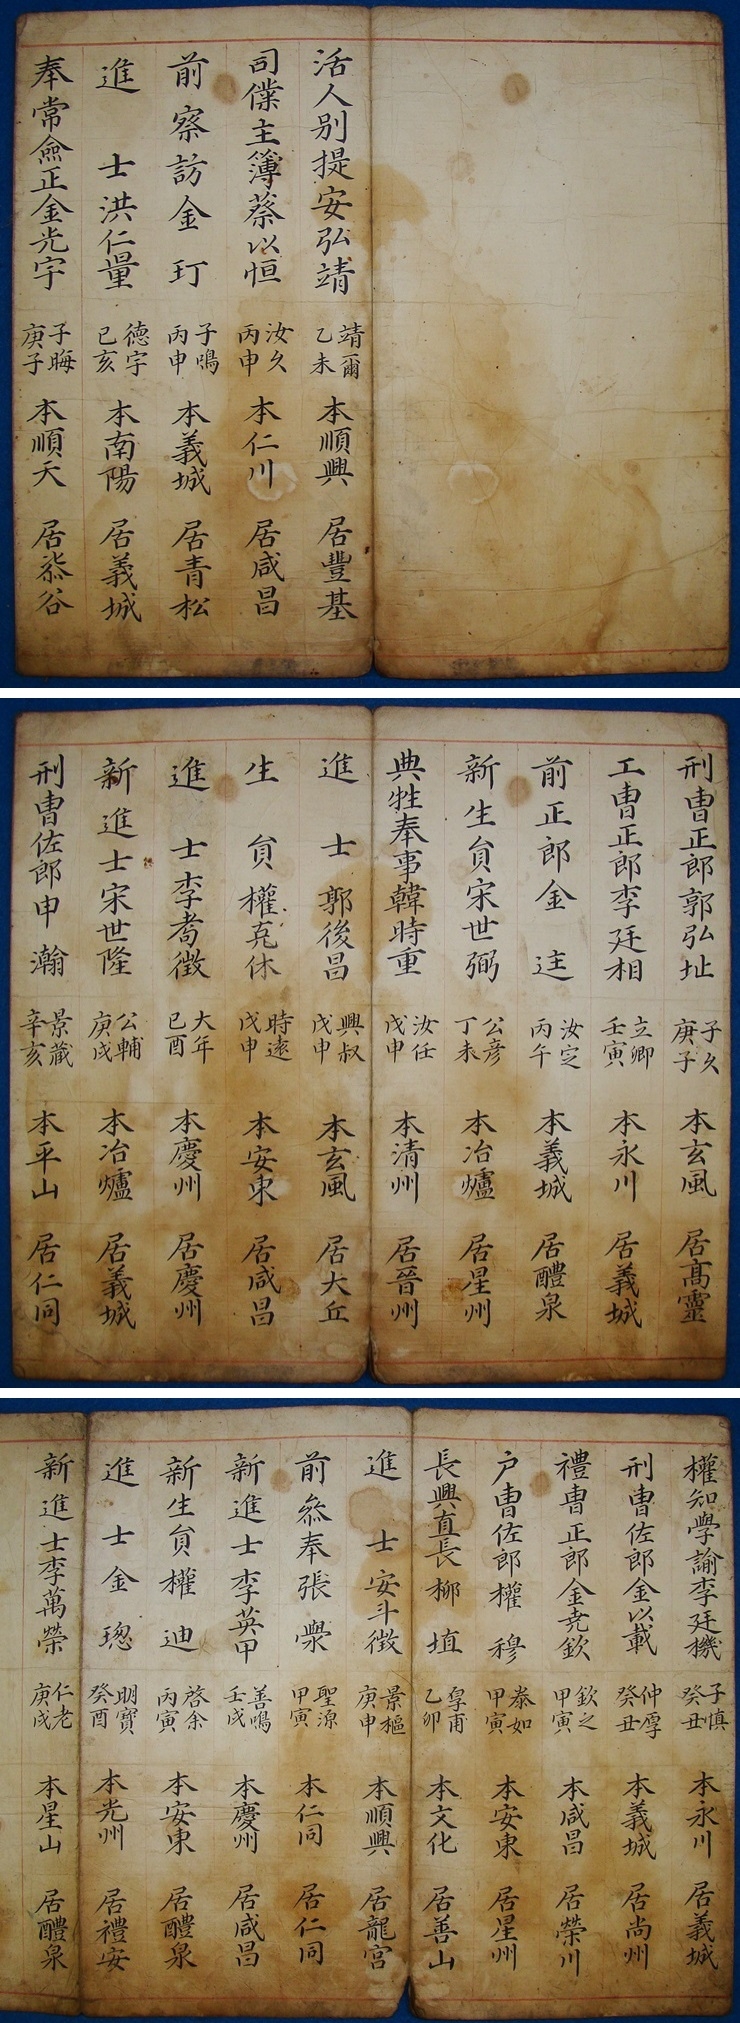 活人別提安弘靖 靖爾 乙未 本順興 居豐基
司僕主簿蔡以恒 汝久 丙申 本仁川 居咸昌
前察訪金玎 子鳴 丙申 本義城 居青松
進士洪仁量 德宇 己亥 本南陽 居義城
奉常僉正金光宇 子晦 庚子 本順天 居柒谷
刑曺正郎郭弘址 子久 庚子 本玄風 居髙靈
工曺正郎李廷相 立卿 壬寅 本永川 居義城
前正郎金 汝定 丙午 本義城 居醴泉
新生員宋世弼 公彦 丁未 本冶爐 居星州
典牲奉事韓時重 汝任 戊申 本清州 居晉州
進士郭後昌 興叔 戊申 本玄風 居大丘
生員權克休 時遠 戊申 本安東 居咸昌
進士李耈徵 大年 己酉 本慶州 居慶州
新進士宋世隆 公輔 庚戌 本冶爐 居義城
刑曺佐郎申瀚 景藏 辛亥 本平山 居仁同
權知學諭李廷機 子慎 癸丑 本永川 居義城
刑曺佐郎金以載 仲厚 癸丑 本義城 居尚州
禮曺正郎金尭欽 欽之 甲寅 本咸昌 居榮川
戸曺佐郎權穆 泰如 甲寅 本安東 居星州
長興直長柳埴 厚甫 乙卯 本文化 居善山
進士安斗徵 景樞 庚申 本順興 居龍宮
前叅奉張澩 聖源 甲寅 本仁同 居仁同
新進士李英甲 善鳴 壬戌 本慶州 居咸昌
新生員權迪 啓余 丙寅 本安東 居醴泉
進士金璁 明寶 癸酉 本光州 居禮安
新進士李萬榮 仁老 庚戌 本星山 居醴泉